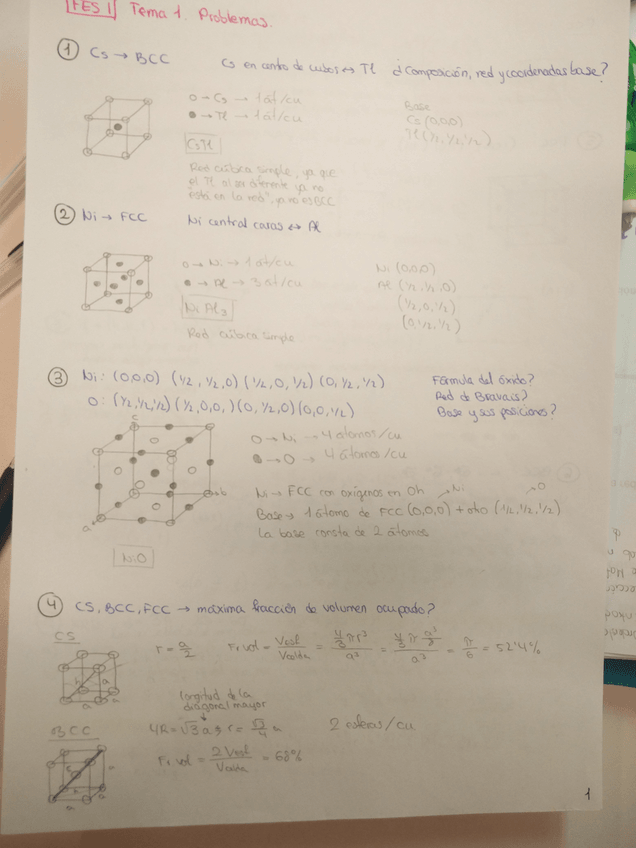 FES I Tema 1. Problemas.
① Cs → BCC Cs en centro de cubos ↔ Tl ¿Composición, red y coordenadas base?
○ → Cs → 1 át/cu
● → Tl → 1 át/cu
Base
Cs (0,0,0)
Tl (1/2, 1/2, 1/2)
CsTl
Red cúbica simple, ya que
el Tl al ser diferente ya no
está en la "red", ya no es BCC
② Ni → FCC Ni central caras ↔ Al
○ → Ni → 1 át/cu
● → Al → 3 át/cu
Ni (0,0,0)
Al (1/2, 1/2, 0)
(1/2, 0, 1/2)
(0, 1/2, 1/2)
Ni Al3
Red cúbica simple
③ Ni: (0,0,0) (1/2, 1/2, 0) (1/2, 0, 1/2) (0, 1/2, 1/2)
O: (1/2, 1/2, 1/2) (1/2, 0, 0,) (0, 1/2, 0) (0, 0, 1/2)
Fórmula del óxido?
Red de Bravais?
Base y sus posiciones?
c
b
a
○ → Ni → 4 átomos/cu
● → O → 4 átomos/cu
Ni → FCC con oxígenos en Oh
Ni O
Base → 1 átomo de FCC (0,0,0) + otro (1/2, 1/2, 1/2)
La base consta de 2 átomos
NiO
④ CS, BCC, FCC → máxima fracción de volumen ocupado?
CS
r = a/2 Fr vol = Vesf/Vcelda = 4/3 π r³/a² = 4/3 π a³/8/a³ = π/6 = 52'4%
a
a
longitud de la
diagonal mayor
BCC
4R = √3 a → r = √3/4 a 2 esferas/cu
Fr vol = 2 Vesf/Vcelda = 68%
a
a
1